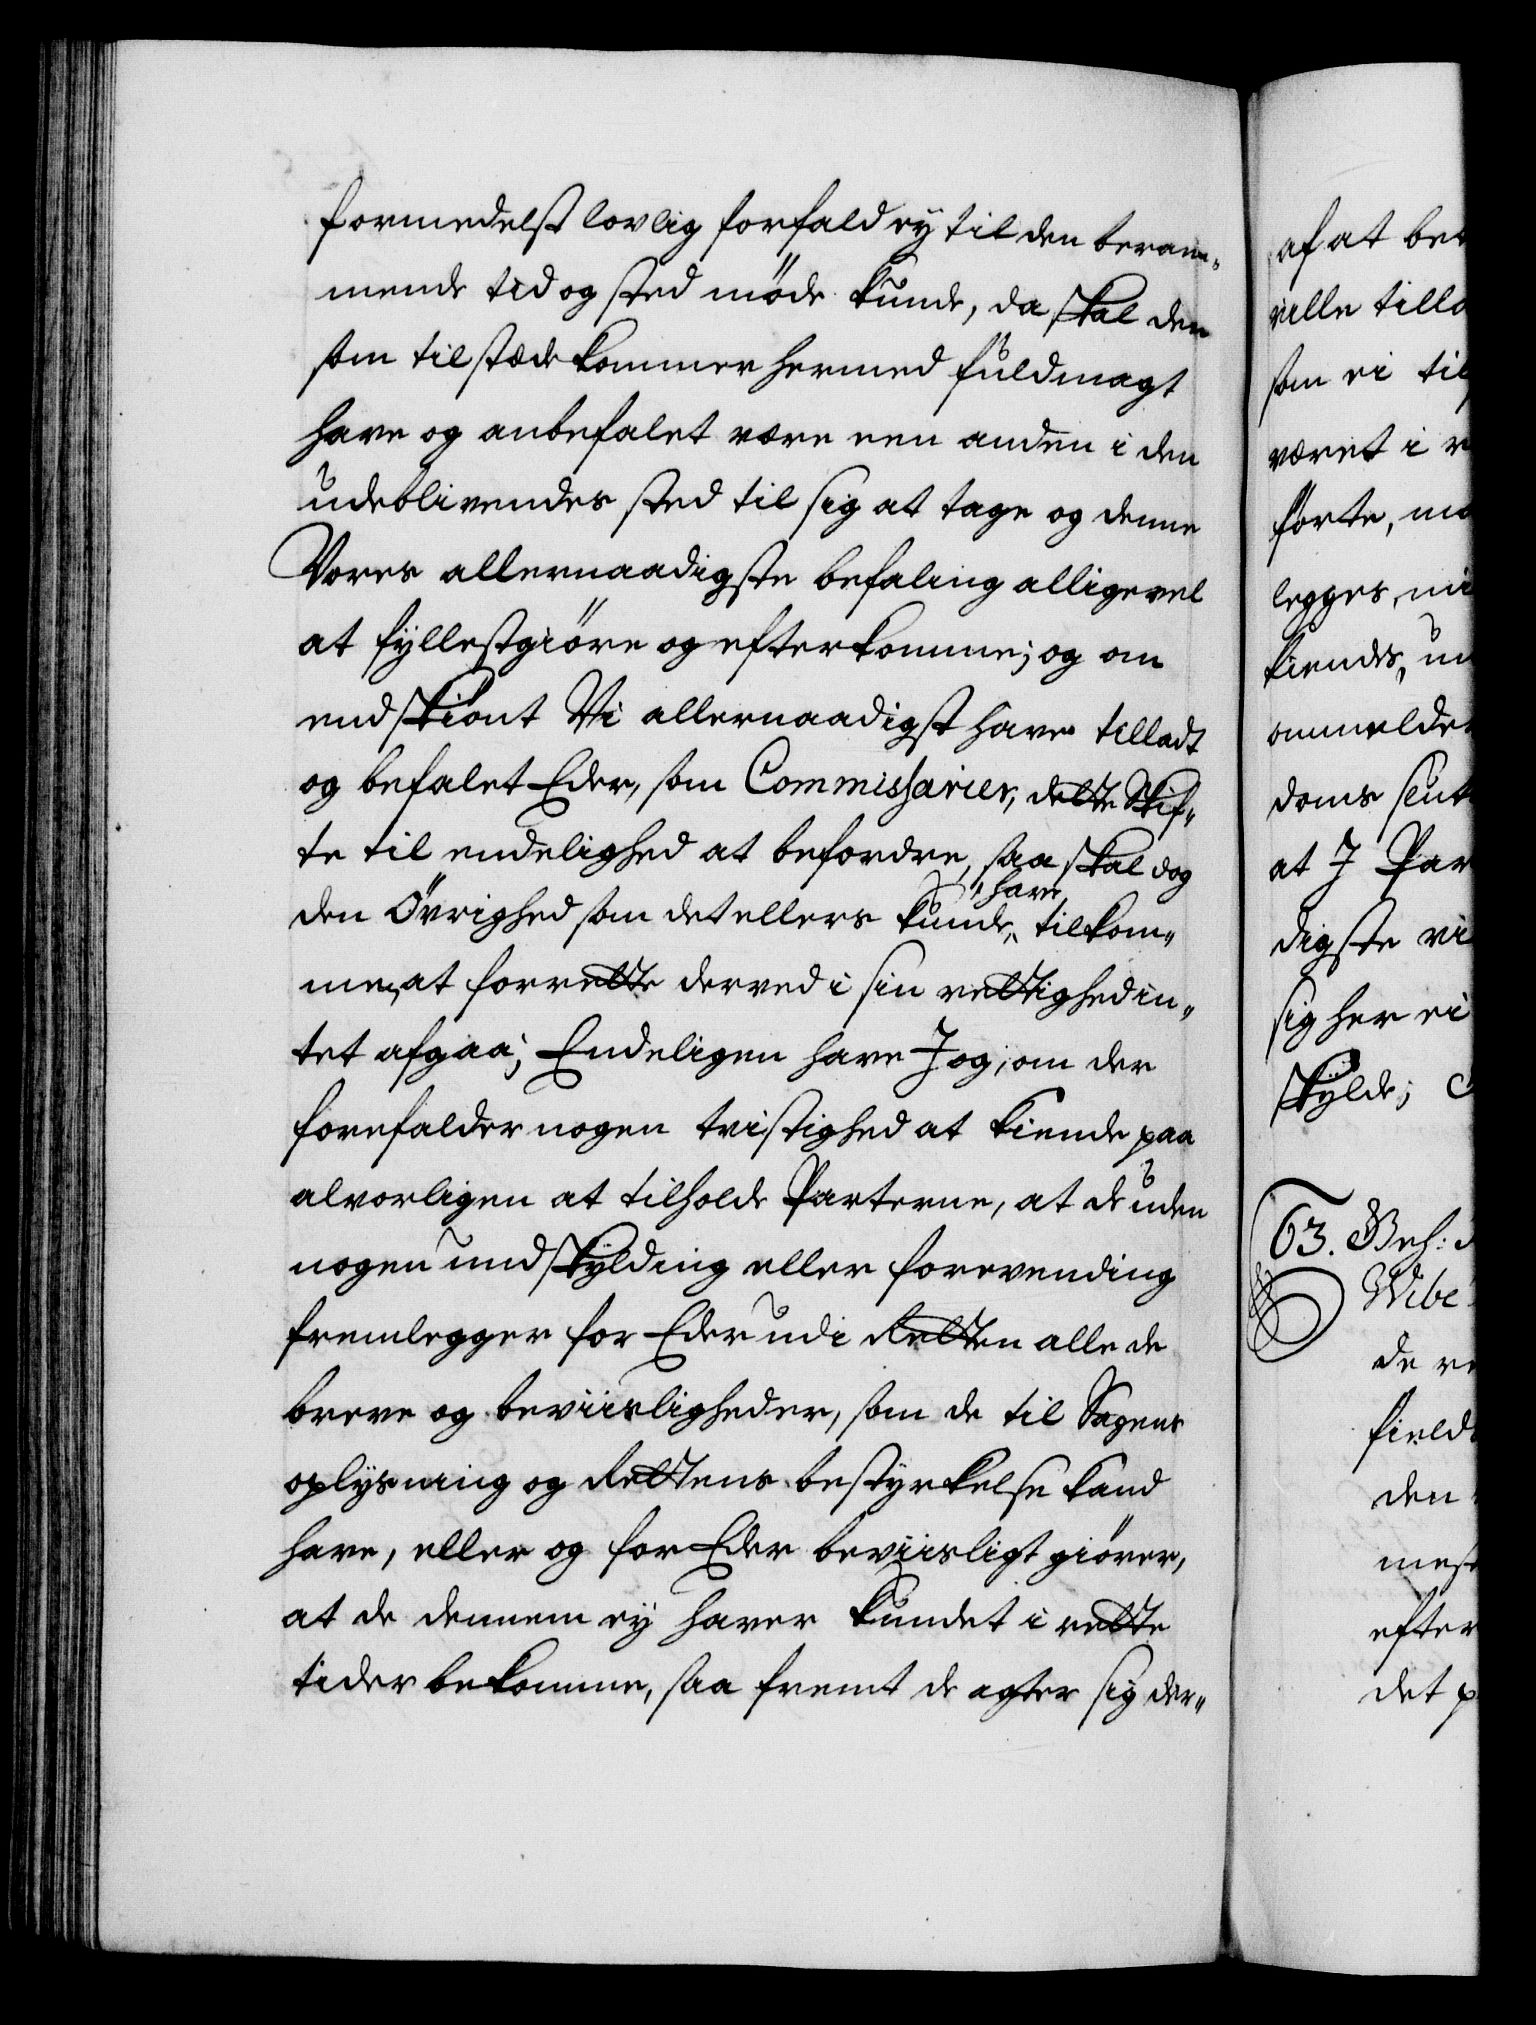 formedelst lovlig forfald ey til den beram„
mende tid og sted möde kunde, da skal den
som tilstæde kommer hermed fuldmagt
have og anbefalet være een anden i den
udeblivendes sted til sig at tage og denne
Vores allernaadigste befaling alligevel
at fyllestgiöre og efterkomme; og om
endskiönt Vi allernaadigst have tilladt
og befalet Eder, som Commissarier, dette Skif„
te til endelighed at befordre, saa skal dog
den Övrighed som det ellers kunde, have tilkom„
me, at forrette derved i sin rettighed in„
tet afgaa; Endeligen have I og, om der
forefalder nogen tvistighed at kiende paa
alvorligen at tilholde Parterne, at de uden
nogen undskylding eller forevending
fremlegger for Eder udi Retten alle de
breve og beviisligheder, som de til Sagens
oplysning og Rettens bestyrkelse kand
have, eller og for Eder beviisligt giörer,
at de dennem ey haver kundet i rette
tider bekomme, saa fremt de agter sig der„
af at be
ville till
som ei til
været i
förte, m
legges,
kiendes, u
ommelde
doms
at I Par
digste vi
sig her ei
skylde;
63. Bef:
Wibe
de
field
den
mest
efter
det p